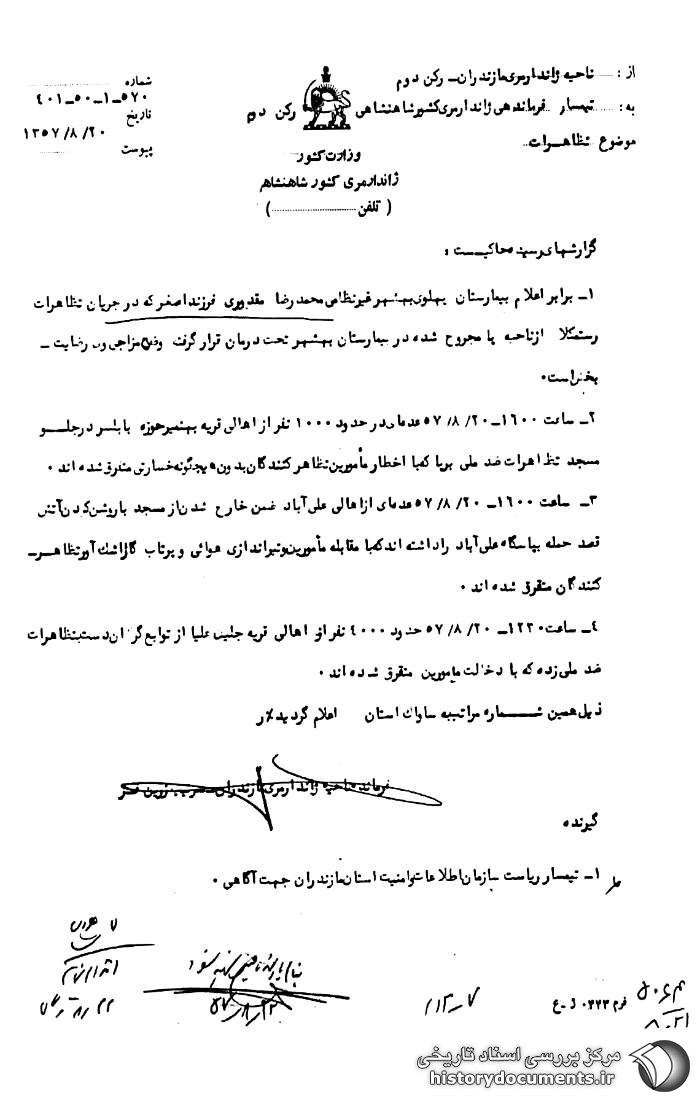 از : ناحیه ژاندارمری مازندران ـ رکن دوم
به : تیمسار فرماندهی ژاندارمری کشور شاهنشاهی رکن دوم
موضوع تظاهرات
شماره
۵۷۰ـ۱ـ۵۰ـ۴۰۱
تاریخ
۱۳۵۷/۸/۲۰
پیوست
وزارت کشور
ژاندارمری کشور شاهنشاهی
( تلفن ........ )
گزارشهای رسیده حاکیست :
۱ـ برابر اعلام بیمارستان پهلوی بهشهر غیرنظامی محمدرضا مقدوری فرزند اصغر که در جریان تظاهرات
رستمکلا از ناحیه پا مجروح شده در بیمارستان بهشهر تحت درمان قرار گرفت وضع مزاجی وی رضایت ـ
بخش است۰
۲ـ ساعت ۱۶۰۰ـ ۵۷/۸/۲۰ عده‌ای در حدود ۱۰۰۰ نفر از اهالی قریه بهنمیر حوزه بابلسر در جلسو
مسجد تظاهرات ضد ملی برپا که با اخطار مأمورین تظاهرکنندگان بدون هیچگونه خسارتی متفرق شده اند ۰
۳ـ ساعت ۱۶۰۰ـ ۵۷/۸/۲۰ عده‌ای از اهالی علی‌آباد ضمن خارج شدن از مسجد با روشن کردن آتش
قصد حمله بپاسگاه علی‌آباد را داشته اند که با مقابله مأمورین و تیراندازی هوائی و پرتاب گاز اشک آور تظاهرـ
کنندگان متفرق شده اند ۰
۴ـ ساعت ۱۲۳۰ـ ۵۷/۸/۲۰ حدود ۴۰۰۰ نفر از اهالی قریه جلین علیا از توابع گرگان دست بتظاهرات
ضد ملی زده که با دخالت مامورین متفرق شده اند ۰
ذیل همین شماره مراتب به ساواک استان اعلام گردید٪ر
فرمانده ناحیه ژاندارمری مازندران ـ سرتیپ زرین فر
گیرنده
۱ـ تیمسار ریاست سازمان اطلاعات و امنیت استان مازندران جهت آگاهی ۰
اقدام
۵۷/۸/۲۳
فرم ۰۳۳۳ ژ ـ ع
مرکز بررسی اسناد تاریخی
historydocuments.ir